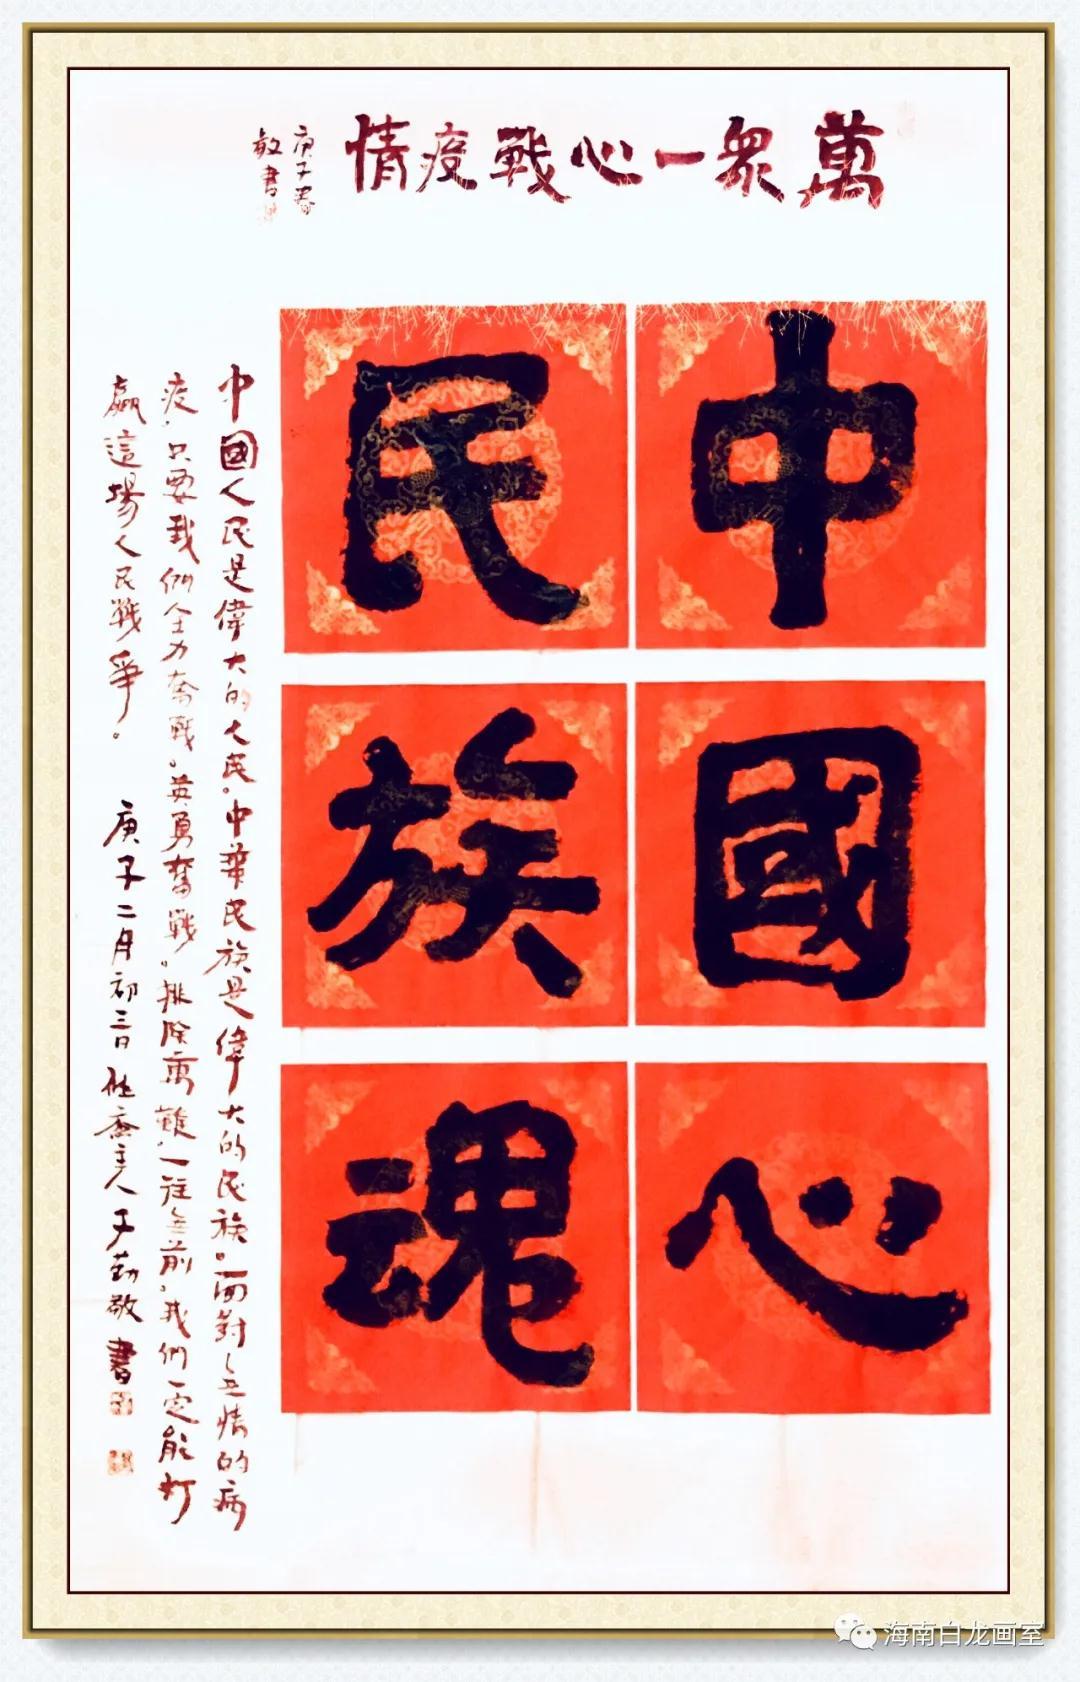 萬衆一心戰疫情
庚子春
敬書
中國心
民族魂
中國人民是偉大的人民。中華民族是偉大的民族。面對無情的病
疫,只要我們全力奮戰。英勇奮戰。排除萬難,一往無前。我們一定能打
贏這場人民戰爭。
庚子二月初三日 齋主人子勤敬書
海南白龙画室